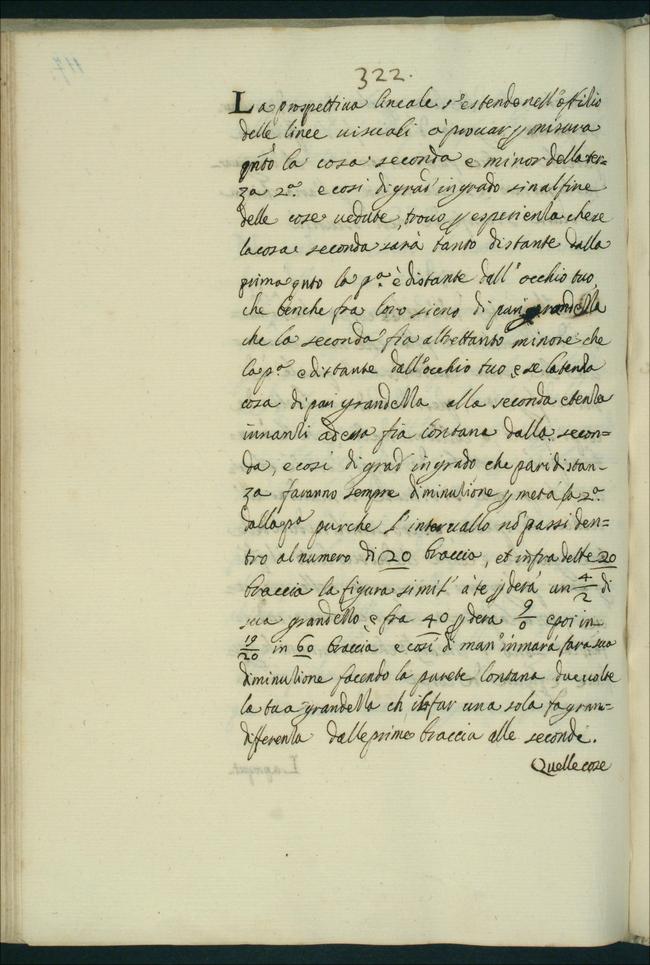 322.
La prospettiua lineale s'estende nell'offitio
delle linee uisuali à prouar p misura
qnto la cosa seconda e minor della ter=
za 2.a e cosi di grad' in grado sin al fine
delle cose uedute, trouo p esperienza che se
la cosa seconda sarà tanto distante dalla
prima qnto la p.a è distante dall'occhio tuo,
che benche fra loro sieno di pari grandezza
che la seconda fia altrettanto minore che
la p.a e distante dall'occhio tuo, e se la terza
cosa di pari grandezza alla seconda e terza
innanzi adessa fia lontana dalla secon=
da, e cosi di grad' in grado che pari distan=
za faranno sempre diminuzione p metà la 2.a
dalla p.a purche l'interuallo nō passi den=
tro al numero di 20 braccia, et infra dette 20
braccia la figura simil' à te pderà un 4/2 di
sua grandezza, e fra 40 pdera 9/0 e poi in
19/20 in 60 braccia e cosi di man' in mano farà sua
diminuzione facendo la parete lontana due uolte
la tua grandezza ch' il far una sola fa gran=
differenza dalle prime braccia alle seconde.
Quelle cose